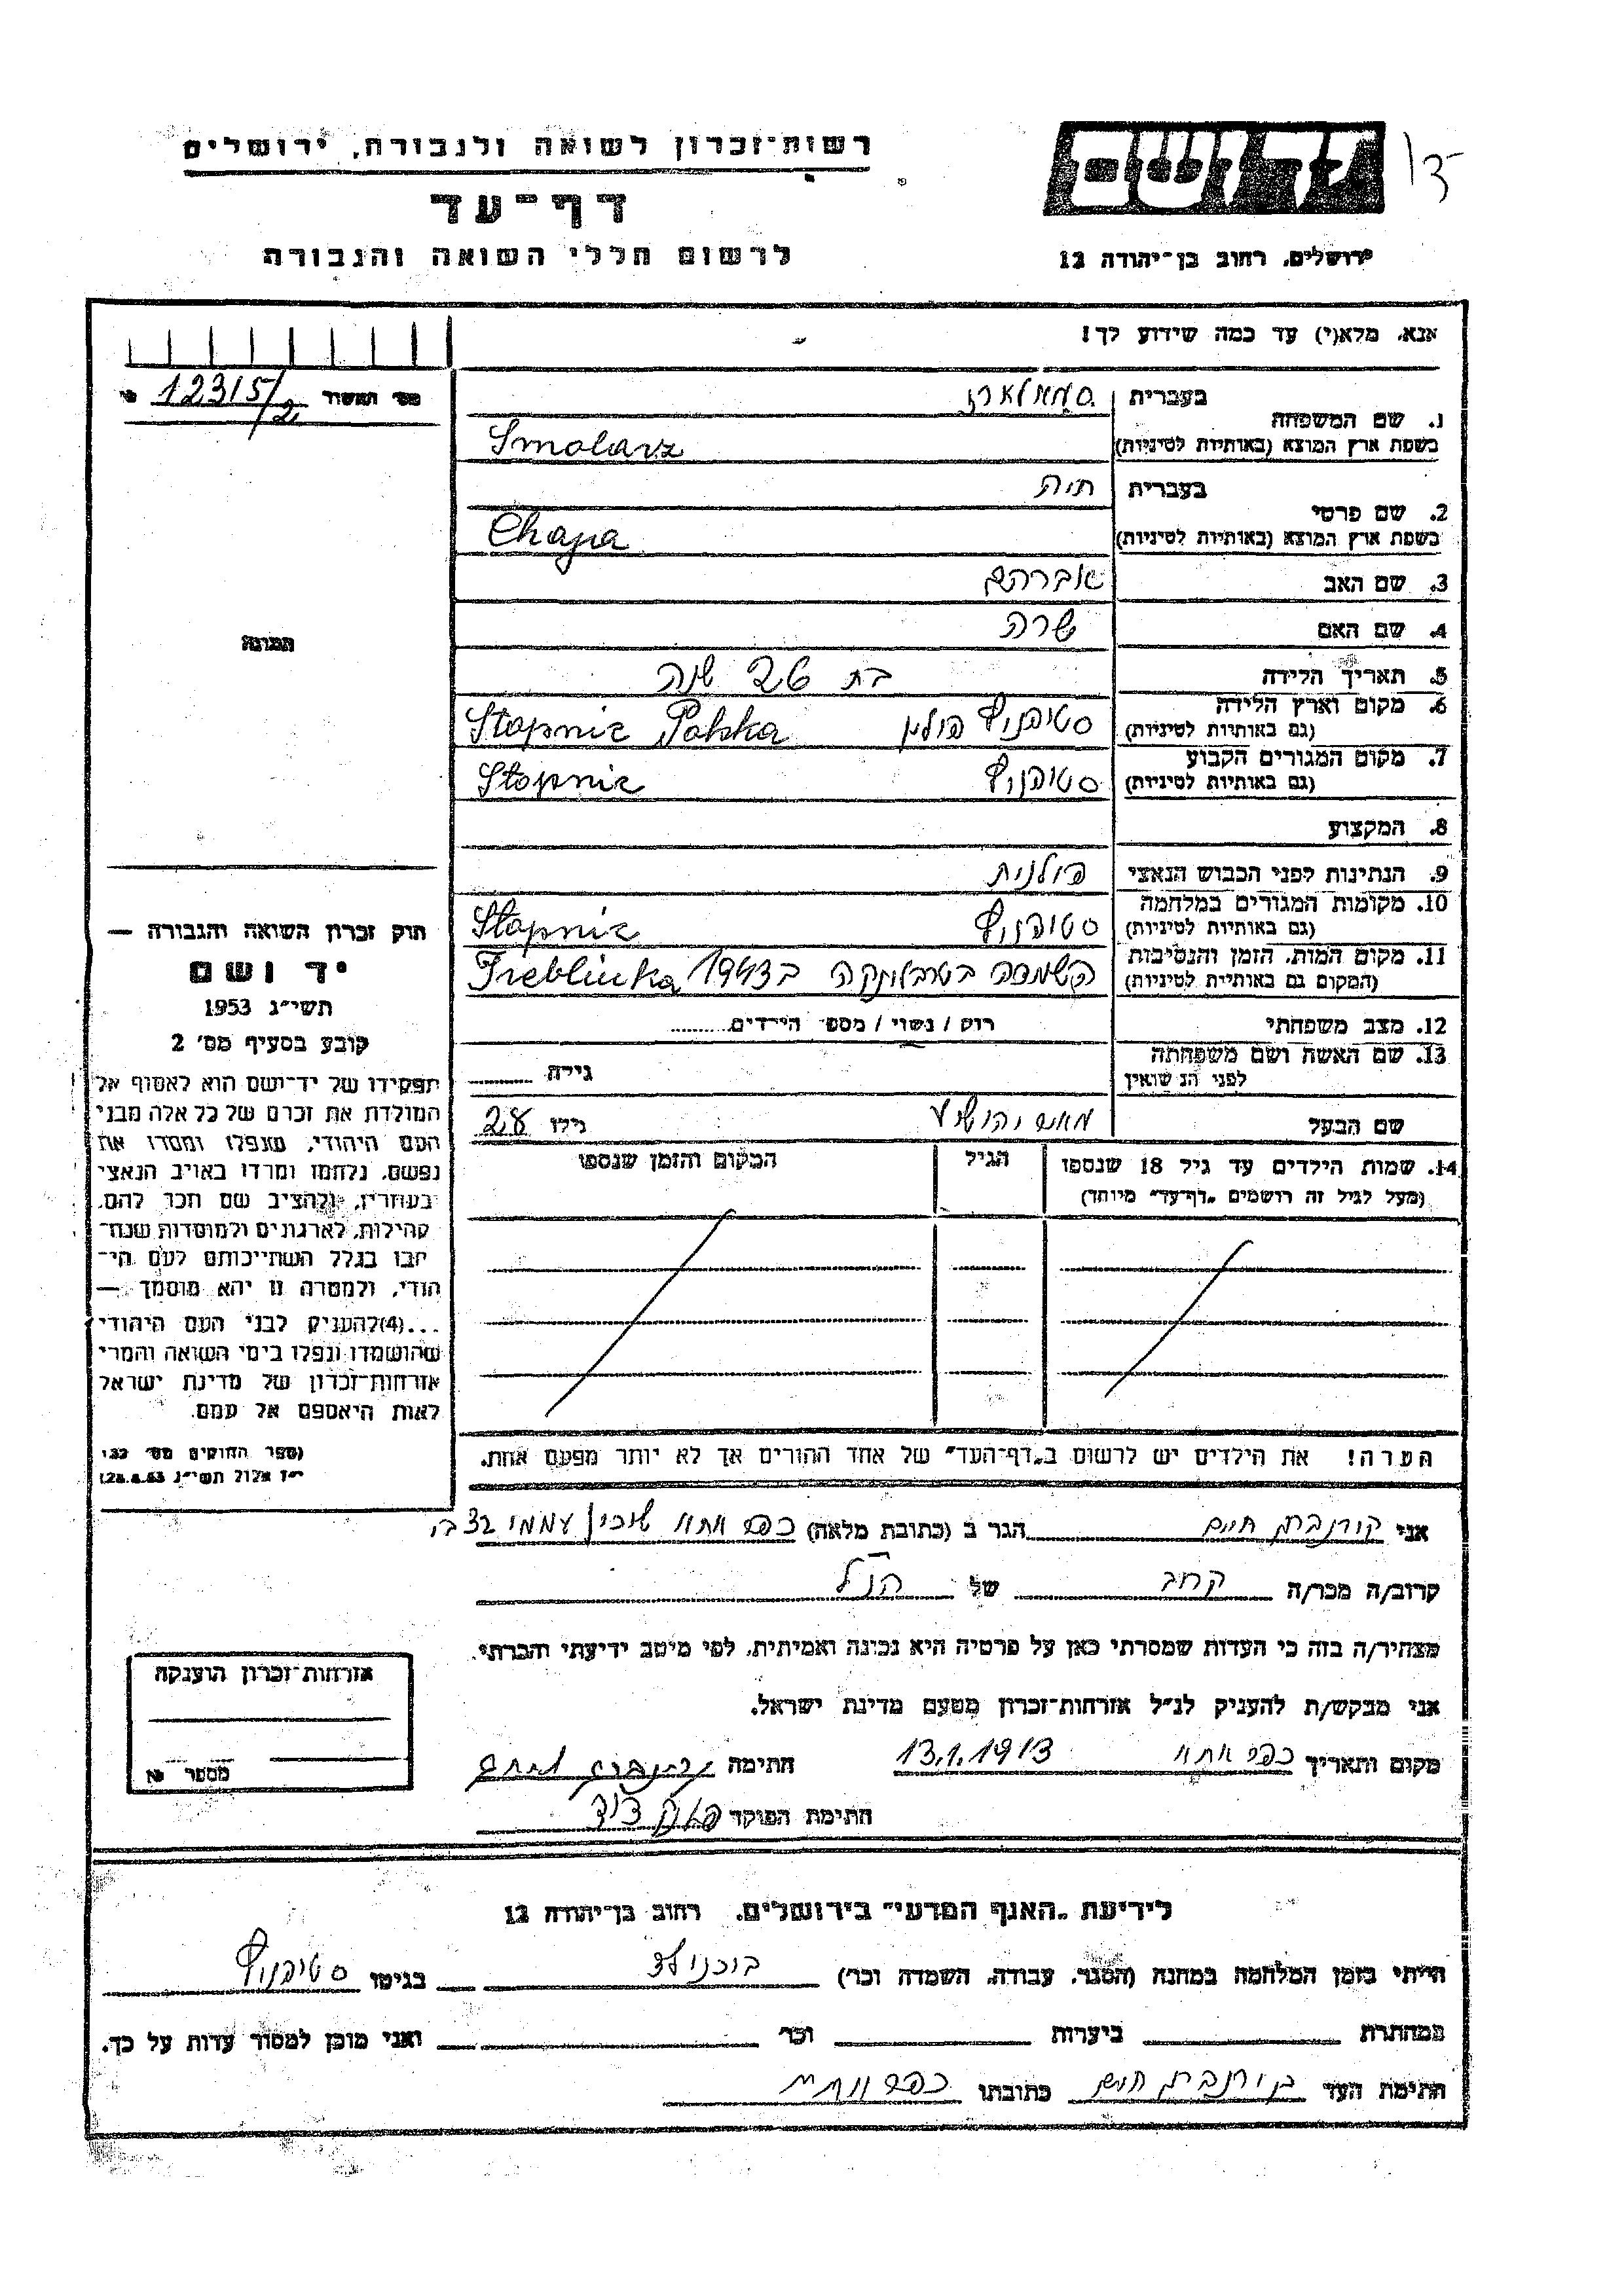 רשות־זכרון לשואה ולגבורה, ירושלים
דף־עד
לרשום חללי השואה והגבורה
יד ושם
ירושלים, רחוב בן־יהודה 12
אנא, מלא(י) עד כמה שידוע לך!
12315/2
1. שם המשפחה
בעברית
סמאלארז
בשפת ארץ המוצא (באותיות לטיניות)
Smolarz
2. שם פרטי
בעברית
חיה
בשפת ארץ המוצא (באותיות לטיניות)
Chaja
3. שם האב אברהם
4. שם האם שרה
5. תאריך הלידה בת 26 שנה
6. מקום וארץ הלידה
(גם באותיות לטיניות)
סטופניץ פולין Stopnic Polska
7. מקום המגורים הקבוע
(גם באותיות לטיניות)
סטופניץ Stopnic
8. המקצוע
9. הנתינות לפני הכבוש הנאצי פולנית
10. מקומות המגורים במלחמה
(גם באותיות לטיניות)
סטופניץ Stopnic
11. מקום המות, הזמן והנסיבות
(המקום גם באותיות לטיניות)
השמדה בטרבלינקה ב 1943 Treblinka
12. מצב משפחתי רוק / נשוי / מספר הילדים
13. שם האשה ושם משפחתה
לפני הנשואין
גילה
שם הבעל יהושע גילו 28
14. שמות הילדים עד גיל 18 שנספו
(מעל לגיל זה רושמים „דף־עד” מיוחד)
הגיל
המקום והזמן שנספו
הערה! את הילדים יש לרשום ב„דף־העד” של אחד ההורים אך לא יותר מפעם אחת.
התמונה
חוק זכרון השואה והגבורה —
יד ושם
תשי״ג 1953
קובע בסעיף מס׳ 2
תפקידו של יד־ושם הוא לאסוף אל
המולדת את זכרם של כל אלה מבני
העם היהודי, שנפלו ומסרו את
נפשם, נלחמו ומרדו באויב הנאצי
בעוזריו, ולהציב שם וזכר להם,
לקהילות, לארגונים ולמוסדות שנח־
רבו בגלל השתייכותם לעם הי־
הודי, ולמטרה זו יהא מוסמך —
...(4)להעניק לבני העם היהודי
שהושמדו ונפלו בימי השואה והמרי
אזרחות־זכרון של מדינת ישראל
לאות היאספם אל עמם.
(ספר החוקים מס׳ 132
י״ז אלול תשי״ג 28.8.53)
אני חיים הגר ב (כתובת מלאה) כפר אתא שיכון עממי
קרוב/ה מכר/ה קרוב של הנ״ל
מצהיר/ה בזה כי העדות שמסרתי כאן על פרטיה היא נכונה ואמיתית, לפי מיטב ידיעתי והכרתי.
אני מבקש/ת להעניק לנ״ל אזרחות־זכרון מטעם מדינת ישראל.
מקום ותאריך כפר אתא 13.1.1913 חתימה
חתימת הפוקד דוד
אזרחות־זכרון הוענקה
מספר
לידיעת „האגף המדעי” בירושלים, רחוב בן־יהודה 12
הייתי בזמן המלחמה במחנה (הסגר, עבודה, השמדה וכר׳) בוכנולד בגיטו סטופניץ
במחתרת ביערות וכר׳ ואני מוכן למסור עדות על כך.
חתימת העד חיים כתובתו כפר אתא